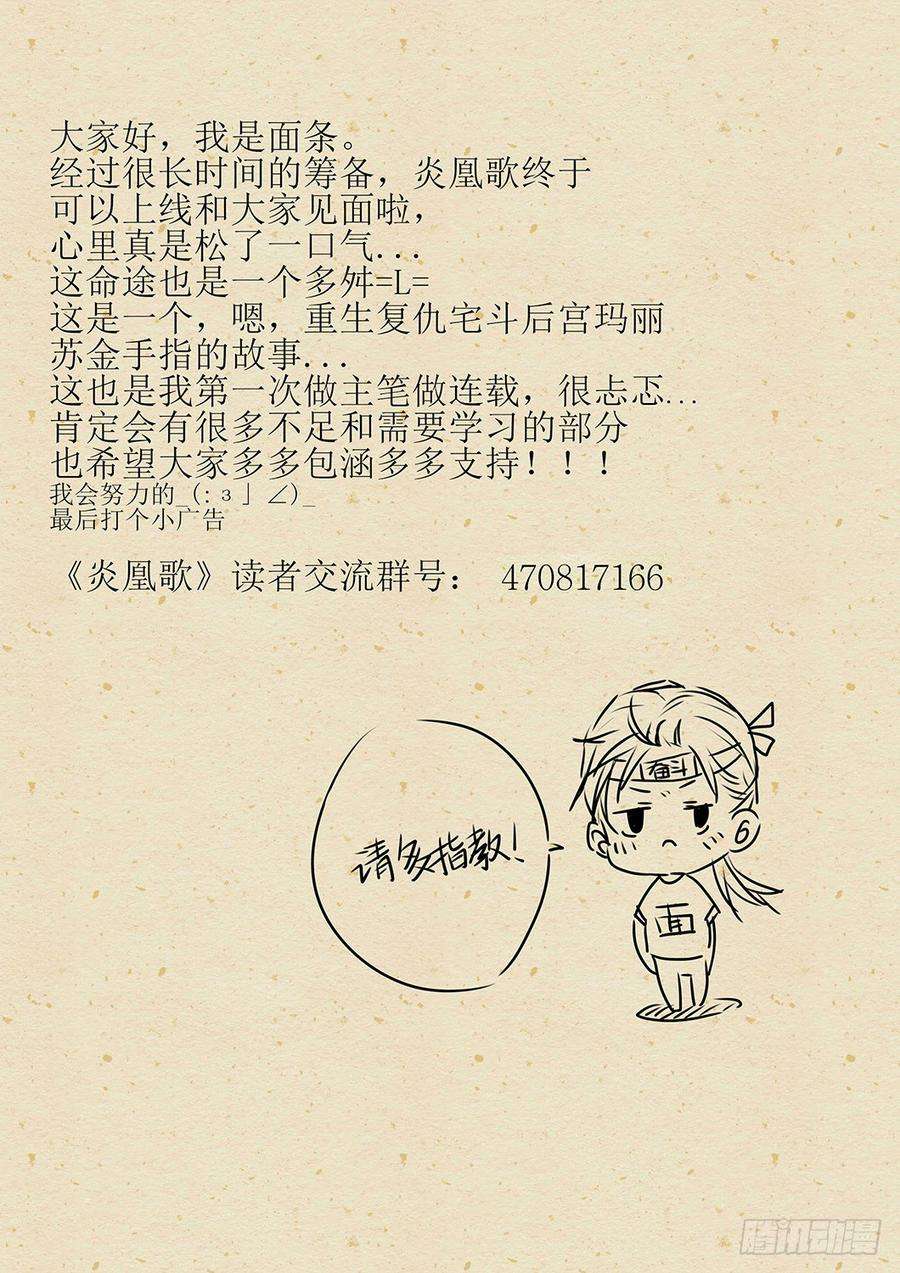 大家好，我是面条。
经过很长时间的筹备，炎凰歌终于
可以上线和大家见面啦，
心里真是松了一口气...
这命途也是一个多舛=L=
这是一个，嗯，重生复仇宅斗后宫玛丽
苏金手指的故事...
这也是我第一次做主笔做连载，很忐忑...
肯定会有很多不足和需要学习的部分
也希望大家多多包涵多多支持！！！
我会努力的_(:з」∠)_
最后打个小广告
《炎凰歌》读者交流群号： 470817166
奋斗
请多指教！
面
腾讯动漫